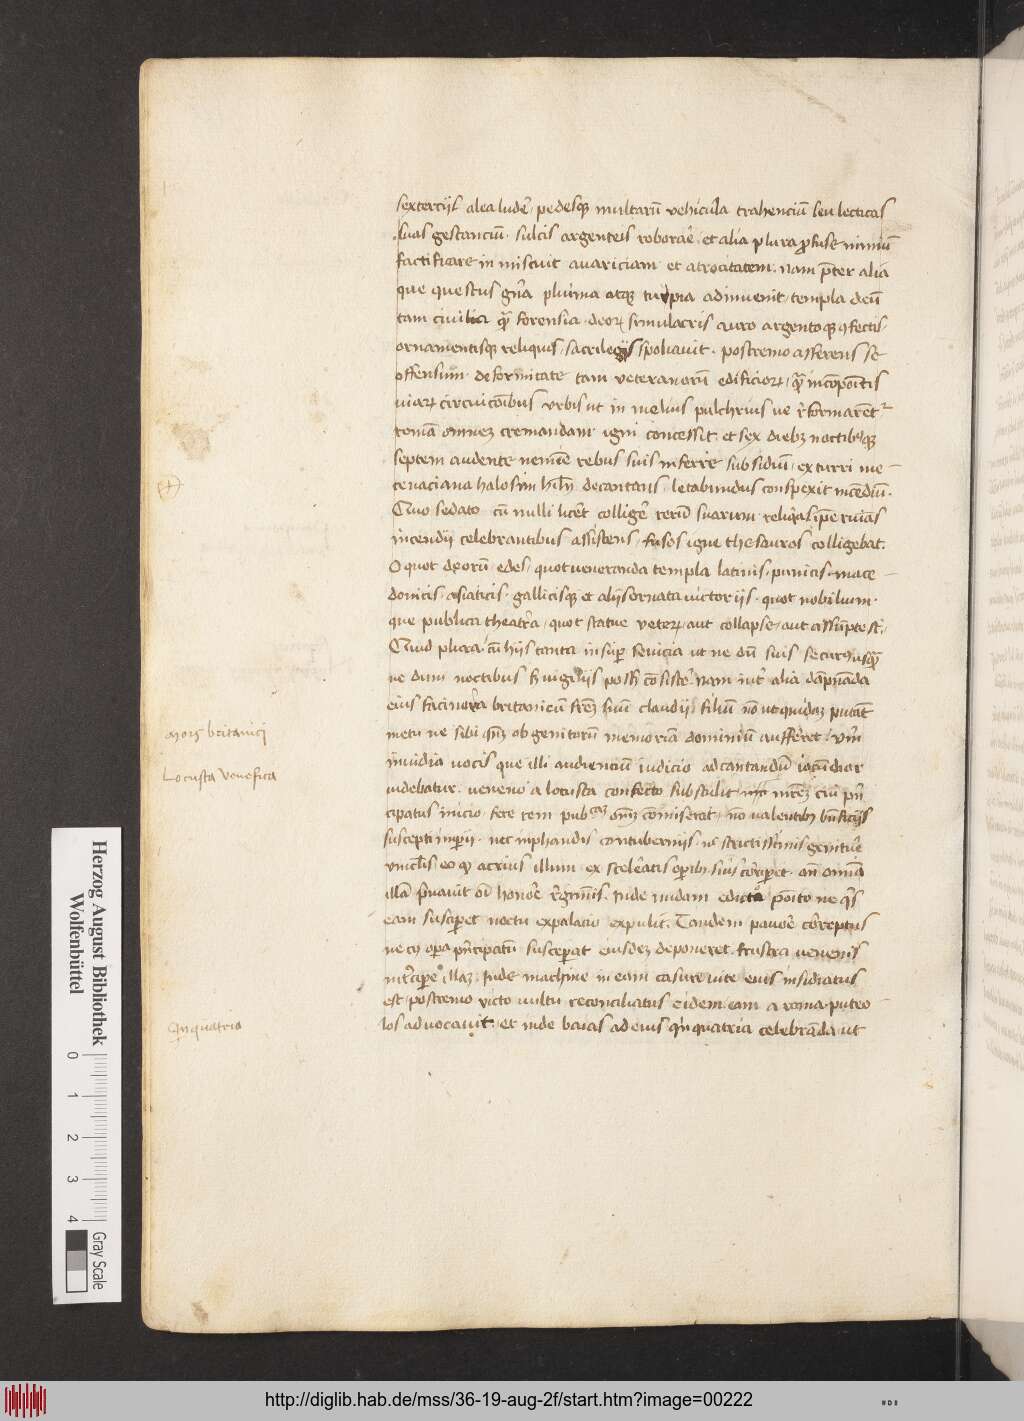 sextercijs alea luder̄ pedesq̨ multarū vehicula trahenciū seu lecticas
suas gestanciū. sulcis argenteis roborar̄. et alia plura ꝓfuse nimiū
factificare inmiscuit avariciam et atrocitatem. nam p̄ter alia
que questus gr̄a plurima atq̨ turpia adinvenit templa deū
tam civilia q̄ forensia. deoꝝ simulacris auro argentoq̨ ꝯfectis
ornamentisq̨ reliquis, sacrilegijs spoliavit. postremo asserens se
offensum deformitate tam veteranorū edificioꝝ, q̄ incōpōitis
viaꝝ circuicōibus urbis ut in melius pulchrius ve r̄formarent᷑
romā omnez cremandam igni concessit. et sex diebꝫ noctibꝰq̨
septem audente nemīe rebus suis inferre subsidiū, ex turri me-
cenaciana halosim decantans letabundus conspexit incēdiū.
Quo sedato cū nulli licēt colliger̄ rerū suarum reliq̄as ip̄e ruīas
incendij celebrantibus assistens, fusos igne thesauros colligebat.
O quot deorū edes, quot veneranda templa latinis, punicis, mace-
donicis asiaticis, gallicisq̨ et alijs ornata victorijs. quot nobilium.
que publica theatr̄a, quot statue veteꝝ aut collapse, aut assūpte st̄.
Quid plura, cū hijs tanta insup̄ sevicia ut ne dū suis secur
ne dum noctibus vigilijs poss̄ cōsister̄. Nam int̄ alia dāpnāda
eius facinora britanicū fr̄em suū claudij filiū nō ut quidaꝫ putāt
metu ne sibi ob genitorū memoriā dominiū aufferet, vm̄
invidia vocis que illi audienciū iudicio ad cantandū iocūdior
videbatur. veneno a locusta confecto substulit
cipatus inicio fere rem pub om̄ē cōmiserat, nō valentibꝫ
suscepti imperij. nec inphandis contubernijs, nec strictissimis genitur̄
vinclis eo ꝙ acrius illum ex sceleratis opibꝫ suis cōriperet. an̄ omīa
illā p̄vauit ōi honore r̄gīmīs. Inde nudam edicto pōito ne q̄s
eam susciperet noctu ex palacio expulit. Tandem pauor̄ cōreptus
ne cꝰ opa p̄ncipatū susceperat eiusdeꝫ deponeret. frustra venenis
int̄cipere illaꝫ. Inde machine in eam casure vite eius insidiatus
est, postremo victo vultu reconciliatus eidem eam a roma puteo-
los ad vocavit, et inde baias ad eius q̄nquatria celebrāda ut
mors britanicj
Locusta venefica
Qīnquatria
Herzog August Bibliothek
Wolfenbüttel
0 1 2 3 4 Gray Scale
http://diglib.hab.de/mss/36-19-aug-2f/start.htm?image=00222